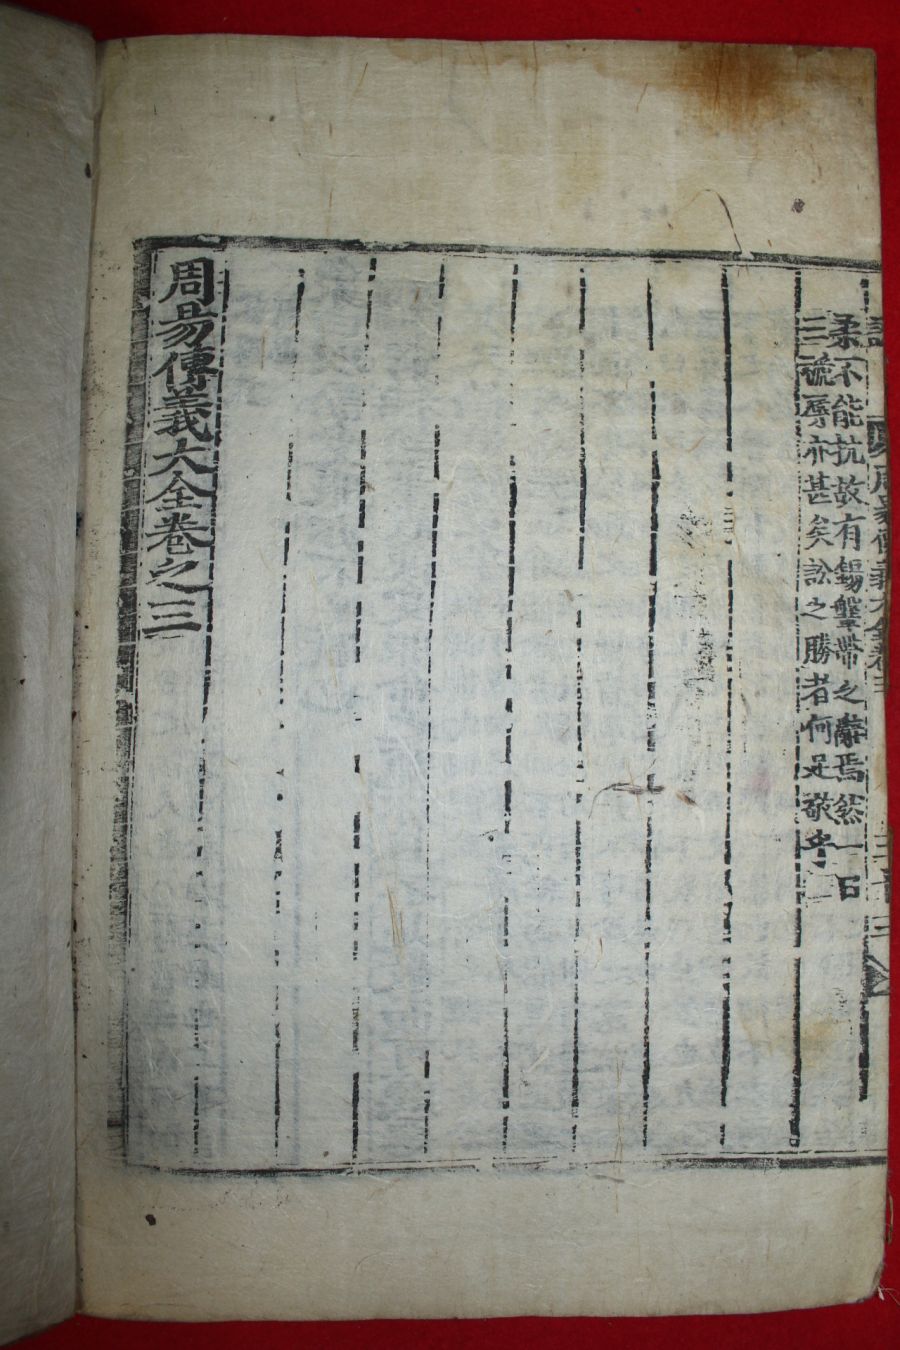 柔不能抗故有錫鞶帶之辭焉然一曰
三褫辱亦甚矣訟之勝者何足敬乎
周易傳義大全卷之三